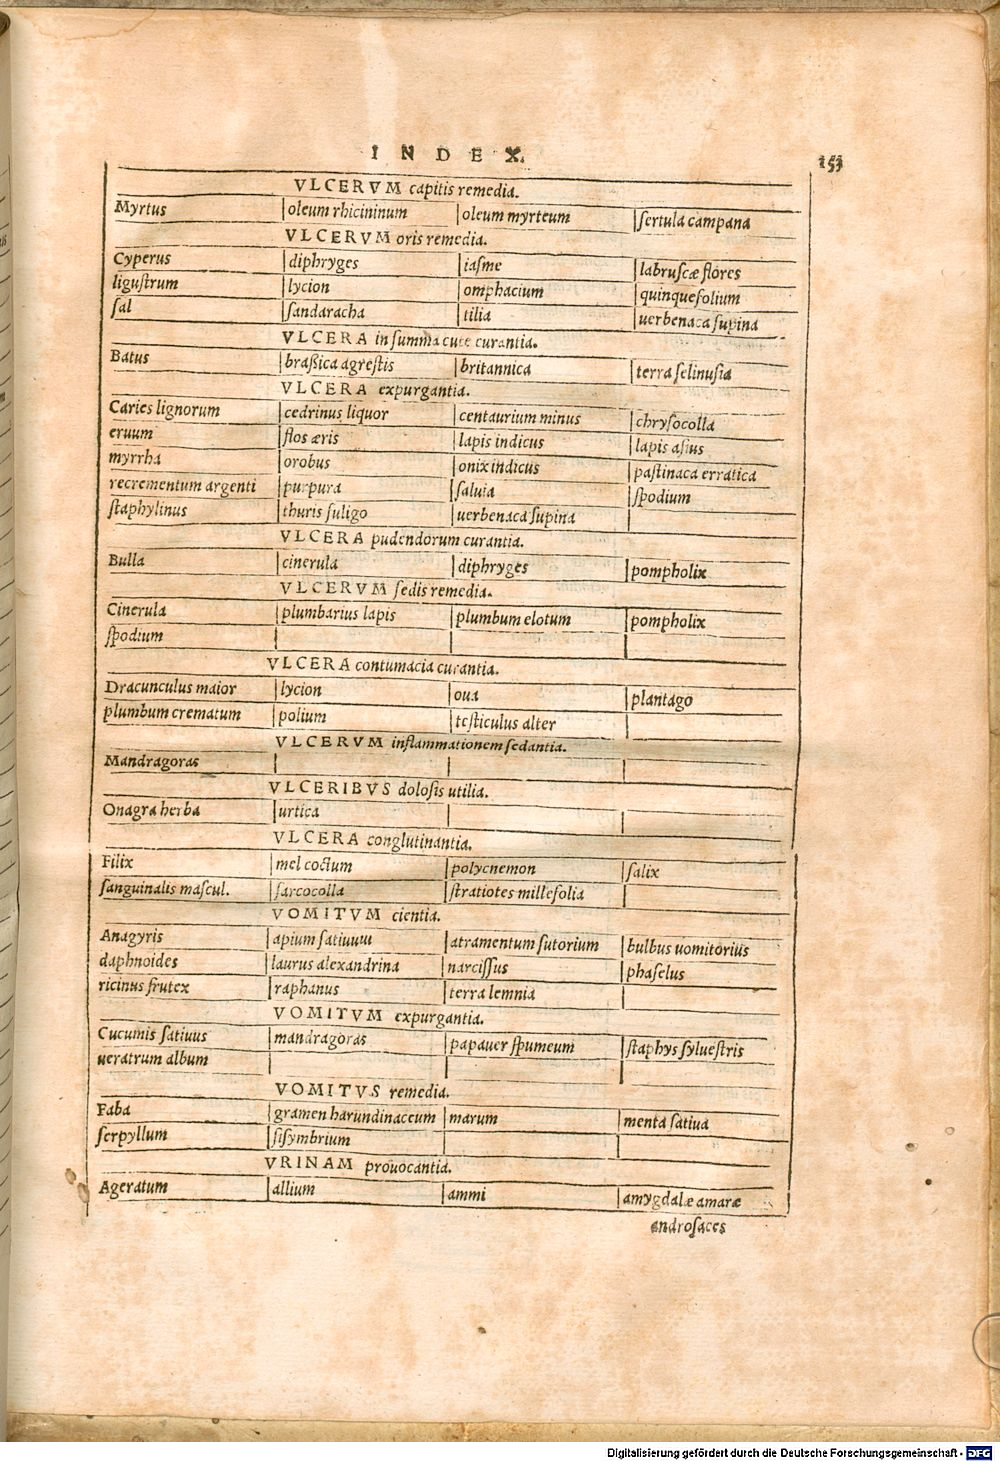 INDEX. 153
VLCERVM capitis remedia.
Myrtus | oleum rhicininum | oleum myrteum | ſertula campana
VLCERVM oris remedia.
Cyperus | diphryges | iaſme | labruſcæ flores
liguſtrum | lycion | omphacium | quinquefolium
ſal | ſandaracha | tilia | uerbenaca ſupina
VLCERA in ſumma cute curantia.
Batus | braßica agreſtis | britannica | terra ſelinuſia
VLCERA expurgantia.
Caries lignorum | cedrinus liquor | centaurium minus | chryſocolla
eruum | flos æris | lapis indicus | lapis aſius
myrrha | orobus | onix indicus | paſtinaca erratica
recrementum argenti | purpura | ſaluia | ſpodium
ſtaphylinus | thuris fuligo | uerbenaca ſupina |
VLCERA pudendorum curantia.
Bulla | cinerula | diphryges | pompholix
VLCERVM ſedis remedia.
Cinerula | plumbarius lapis | plumbum elotum | pompholix
ſpodium | | |
VLCERA contumacia curantia.
Dracunculus maior | lycion | oua | plantago
plumbum crematum | polium | teſticulus alter |
VLCERVM inflammationem ſedantia.
Mandragoras | | |
VLCERIBVS doloſis utilia.
Onagra herba | urtica | |
VLCERA conglutinantia.
Filix | mel coctum | polycnemon | ſalix
ſanguinalis maſcul. | ſarcocolla | ſtratiotes millefolia |
VOMITVM cientia.
Anagyris | apium ſatiuum | atramentum ſutorium | bulbus uomitorius
daphnoides | laurus alexandrina | narciſſus | phaſelus
ricinus frutex | raphanus | terra lemnia |
VOMITVM expurgantia.
Cucumis ſatiuus | mandragoras | papauer ſpumeum | ſtaphys ſylueſtris
ueratrum album | | |
VOMITVS remedia.
Faba | gramen harundinaceum | marum | menta ſatiua
ſerpyllum | ſiſymbrium | |
VRINAM prouocantia.
Ageratum | allium | ammi | amygdalæ amaræ
androſaces
Digitalisierung gefördert durch die Deutsche Forschungsgemeinschaft - DFG